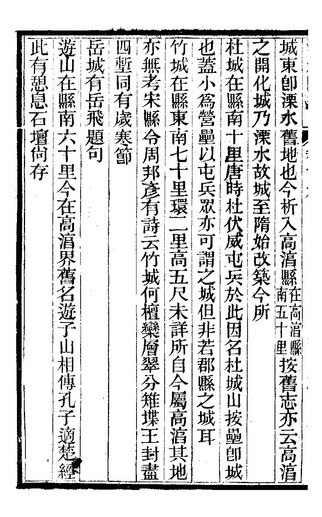 城東卽溧水舊地也今析入高湻縣在高湻縣南五十里按舊志亦云高湻
之開化城乃溧水故城至隋始改築今所
杜城在縣南十里唐時杜伏威屯兵於此因名杜城山按壘卽城
也蓋小爲營壘以屯兵眾亦可謂之城但非若郡縣之城耳
竹城在縣東南七十里環一里高五尺未詳所自今屬高湻其地
亦無考宋縣令周邦彥有詩云竹城何檀欒層翠分雉堞王封盡
四塹同有歲寒節
岳城有岳飛題句
遊山在縣南六十里今在高湻界舊名遊子山相傳孔子適楚經
此有憩息石壇尙存